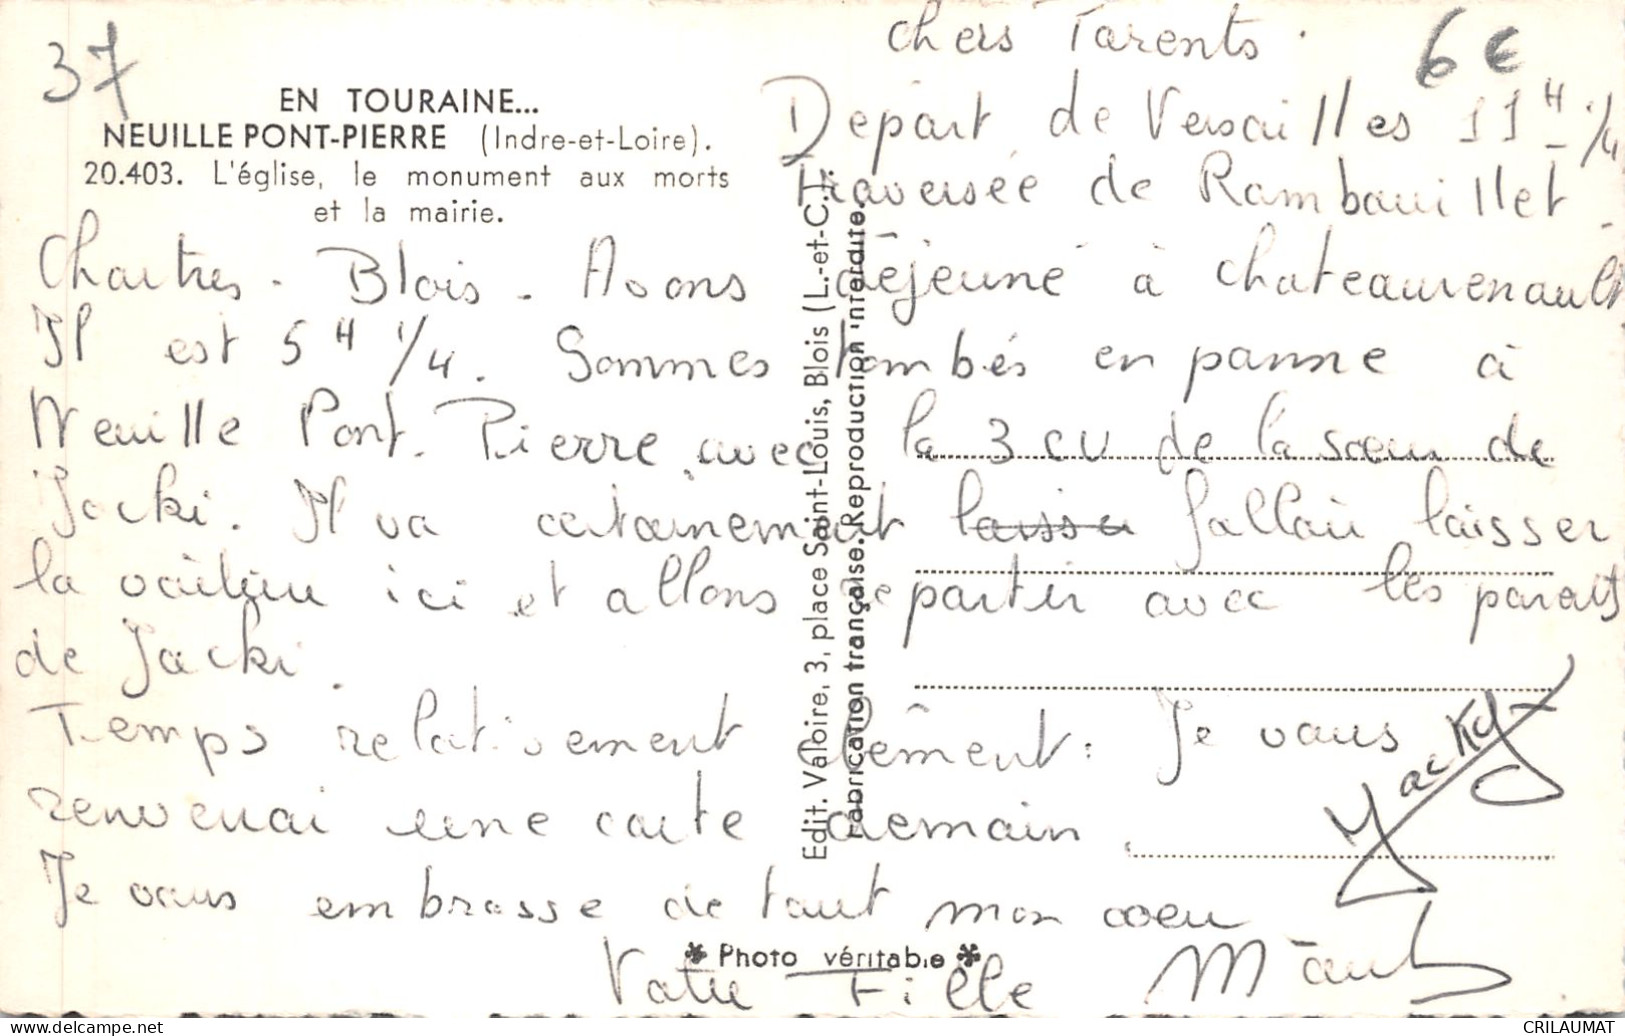 37
6 €
EN TOURAINE...
NEUILLE PONT-PIERRE (Indre-et-Loire).
20.403. L'église, le monument aux morts
et la mairie.
Chers Parents.
Départ de Versailles 11 H 1/4
traversée de Rambouillet.
Chartres - Blois. Avons déjeuné à chateaurenault
Il est 5 H 1/4. Sommes tombés en panne à
Neuille Pont-Pierre avec la 3 CV de la sœur de
Jacki. Il va certainement laisser falloir laisser
la voiture ici et allons repartir avec les parents
de Jacki.
Temps relativement clément. Je vous
renverrai une carte demain.
Je vous embrasse de tout mon coeur
Votre Fille
Jacky
Edit. Valoire, 3, place Saint-Louis, Blois (L.-et-C.).
Fabrication française. Reproduction interdite.
* Photo véritable *
CRILAUMAT